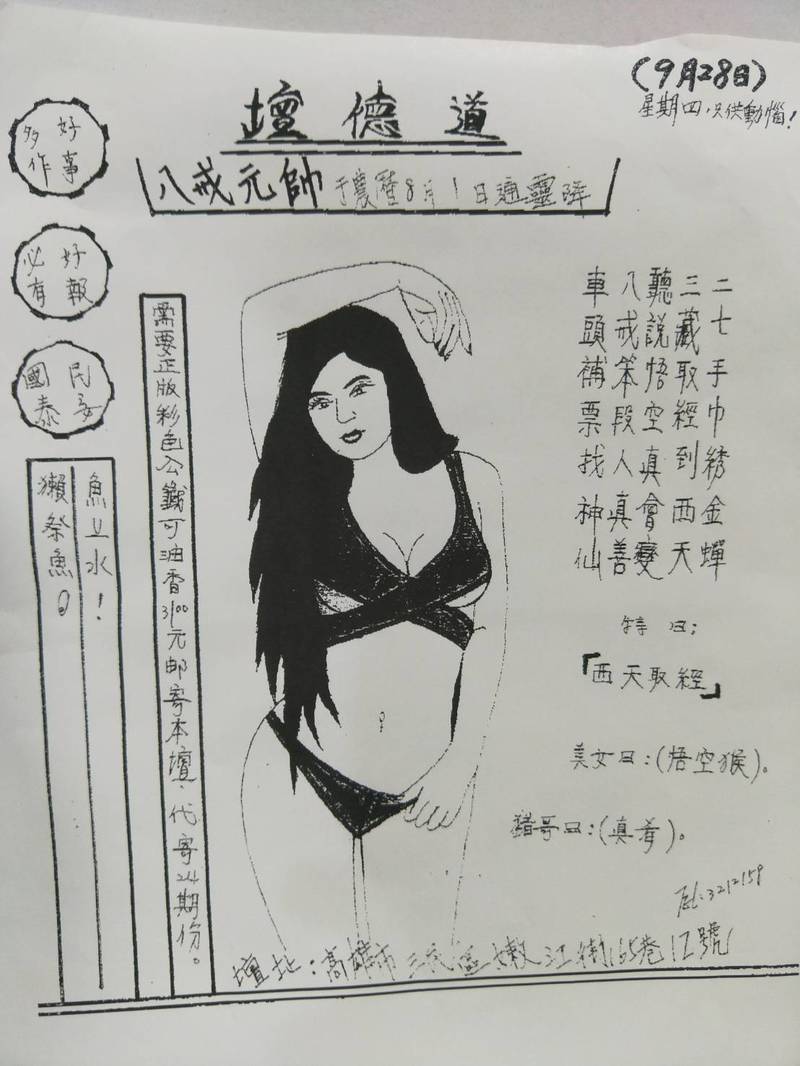 (9月28日)
星期四，只供動惱！
壇德道
八戒元帥 于農曆8月1日通靈降
好事
多作
好報
必有
民安
國泰
二七手巾綉金蟬
三藏取經到西天
聽說悟空真會變
八戒笨段人真善
車頭補票找神仙
特曰；
「西天取經」
美女曰：(悟空猴)。
豬哥曰：(真肴)。
需要正版彩色公籤可油香3100元邮寄本壇．代寄24期份。
魚立水！
獺祭魚。
Tel:3212159
壇址：高雄市三民區嫩江街165巷12號